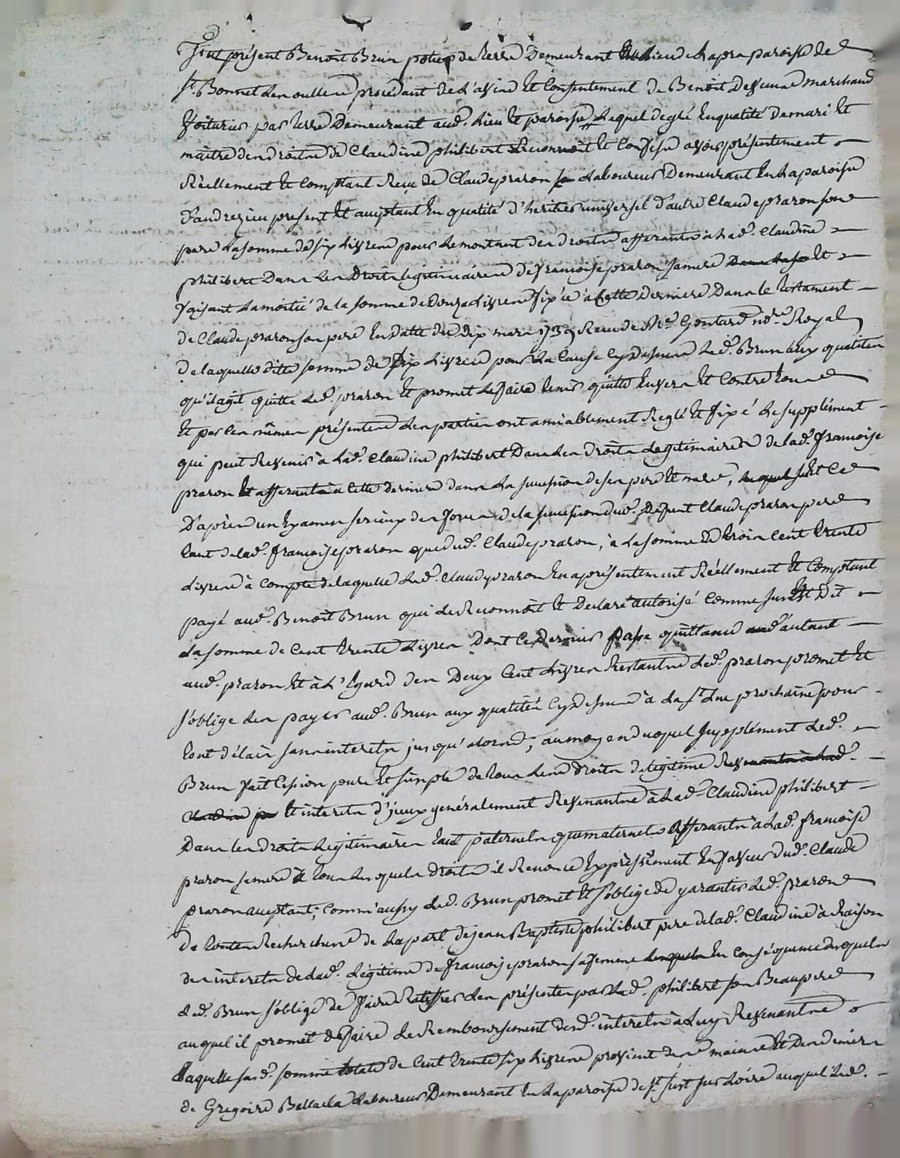 fut présent Benoit Brun potier de terre Demeurant au lieu de Chapra paroisse de
St Bonnet Les oulles procédant De L'avis Et Consentement De Benoit marchand
Voiturier par terre Demeurant aud. Lieu Et paroisse Lequel De gré En qualité de mari Et
maitre des droits De Claudine philibert Reconnoit Et Confesse avoir présentement
Réellement Et Comptant Reçu de Claude praron Laboureur Demeurant En La paroisse
D'andrezieu present Et aceptant En qualité d'heritier universel d'autre Claude praron son
pere La somme de six Livres pour Le montant des droits afferants a Lad. Claudine
philibert Dans Les Droits legitimaires de francoise praron sa mere Et
faisant La moitié de la somme de Douze Livres fixée a Cette derniere Dans le testament
de Claude praron son pere En datte du Dix mars 1739 Recu de Me. Gontard nore. Royal
de laquelle dite somme de six Livres pour La Cause Cy Dessus Led. Brun aux qualités
qu'il agit quitte Led. praron Et promet Le faire tenir quitte Envers Et Contre tous
Et par Les mêmes présentes Les parties ont amiablement Reglé Et fixé Le supplément
qui peut Revenir à Lad. Claudine philibert Dans Les droits Legitimaires de lad. francoise
praron Et afferants a Cette derniere dans La succession de ses pere Et mere,
D'après un Examen serieux des forces de la succession dud. Défunt Claude praron pere
tant de lad. francoise praron que dud. Claude praron, à La somme De trois Cent trente
Livres à Compte de laquelle Led. Claude praron En a présentement Réellement Et Comptant
payé aud. Benoit Brun qui Le Reconnoit Et Declare autorisé Comme sus Est Dit
La somme de Cent trente Livres Dont Ce Dernier passe quittance autant
aud. praron Et à L'Egard des Deux Cent Livres Restantes Led. praron promet Et
s'oblige Les payer aud. Brun aux qualités Cy Dessus à La St. Luc prochaine pour
tout délai sans interets jusqu'alors; au moyen duquel suplément Led.
Brun fait Cession pure Et simple de tous Les droits de legitime
Et interets d'iceux généralement Revenants à Lad. Claudine philibert
Dans les droits Legitimaires tant paternels que maternels afferants à Lad. francoise
praron sa mere à tous Lesquels droits il Renonce Expressement En faveur dud. Claude
praron aceptant; Comm'aussy Led. Brun promet Et s'oblige de garantir Led. praron
de toutes Recherches de La part de jean Baptiste philibert pere de lad. Claudine à Raison
des interets de lad. Légitime de francoise praron sa femme En Conséquence Desquels
Led. Brun s'oblige de faire Ratifier Les présentes par Led. philibert son Beaupere
auquel il promet de faire Le Remboursement desd. interets à Luy Revenants
Laquelle susd. somme totale de Cent trente six Livres provient des mains Et Des deniers
de Grégoire Laboureur Demeurant En La paroisse de St. just sur Loire auquel Led.